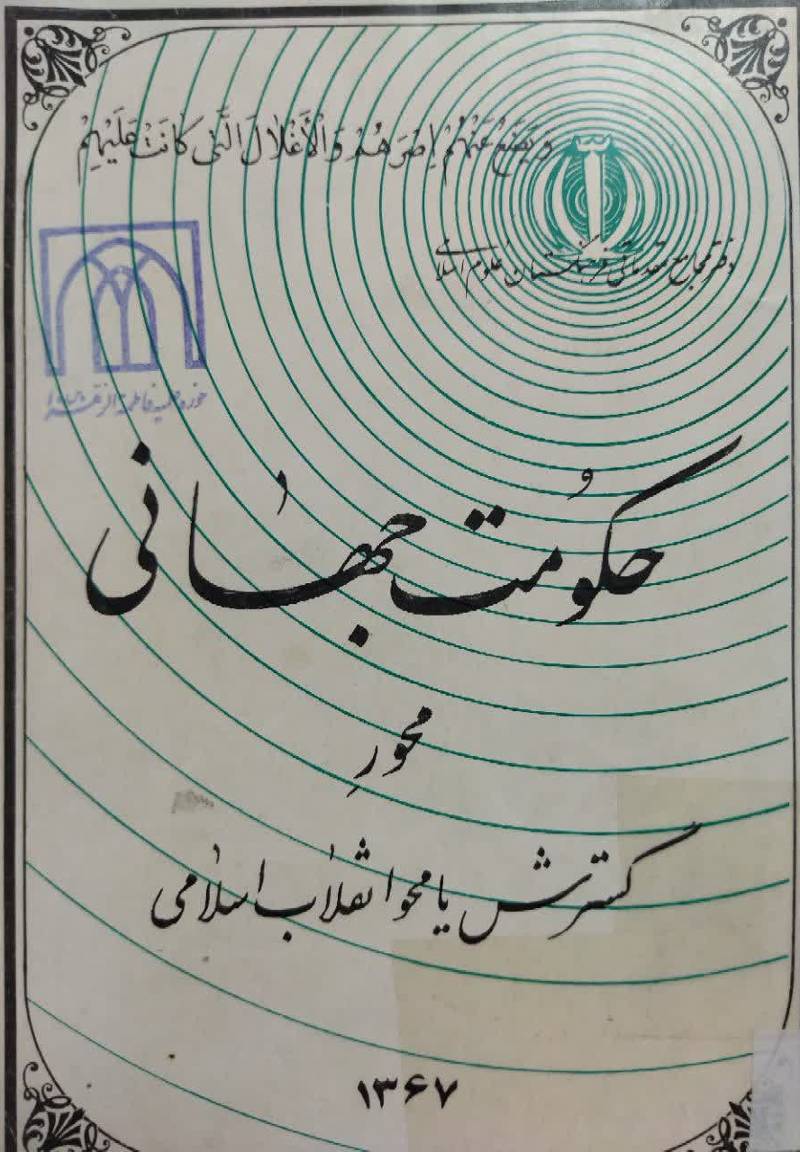 وَيَضَعُ عَنْهُمْ اِصْرَهُمْ وَالْأَغْلَالَ الَّتى كَانَتْ عَلَيْهِمْ
دفتر مجامع مقدماتی فرهنگستان علوم اسلامی
حوزه علمیه فاطمة الزهرا
حکُومت جهانی
محورِ
گسترش یا محو انقلاب اسلامی
۱۳۶۷